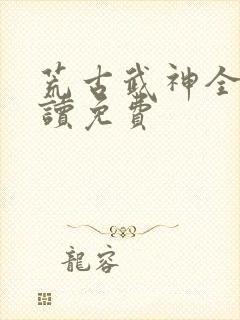 荒古武神全
讀免費
龍容